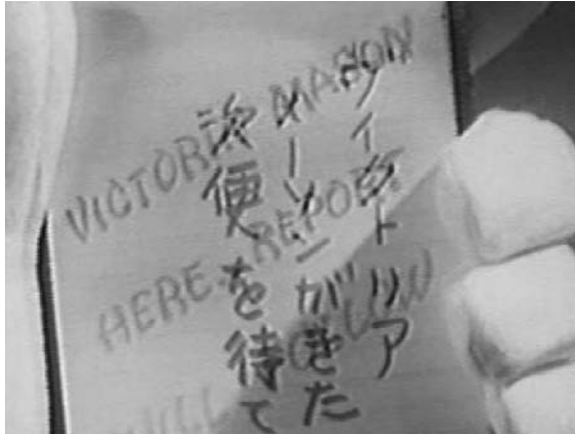 VICTORIA MASON
HERE. REPORT
WILL
ヴィクトリア
メーソンがきた
後便を待て